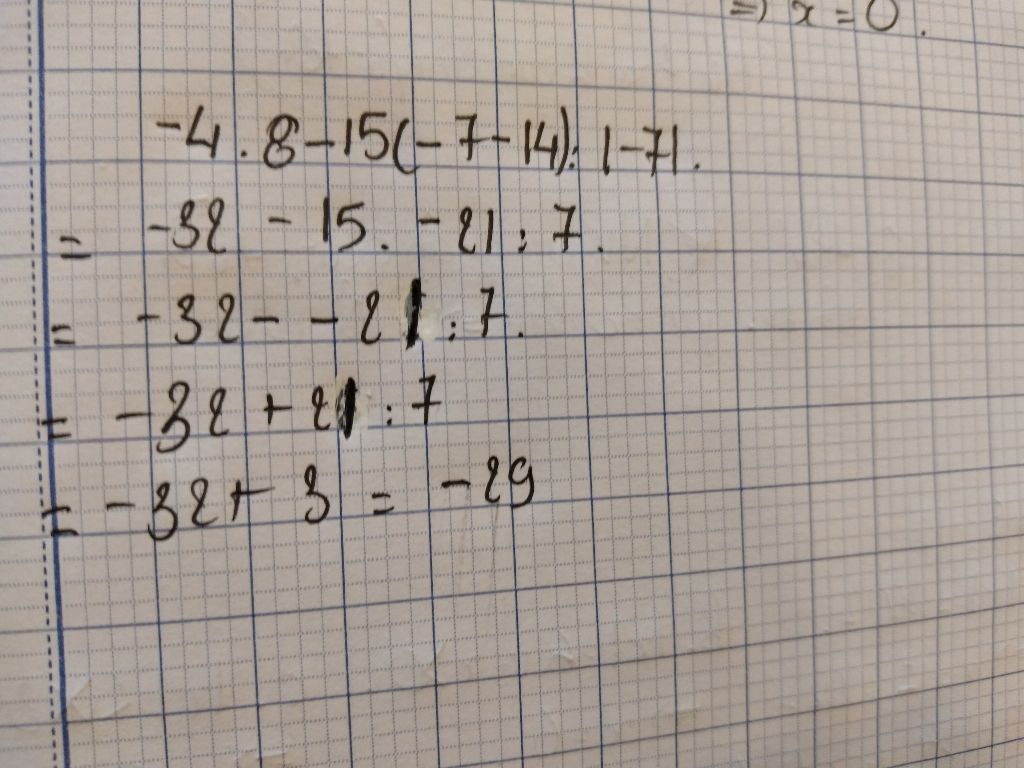 =) x = 0.
-4 . 8 - 15(-7-14): |-7|.
= -32 - 15. -21 : 7.
= -32 - - 21 : 7.
= -32 + 21 : 7
= -32 + 3 = -29